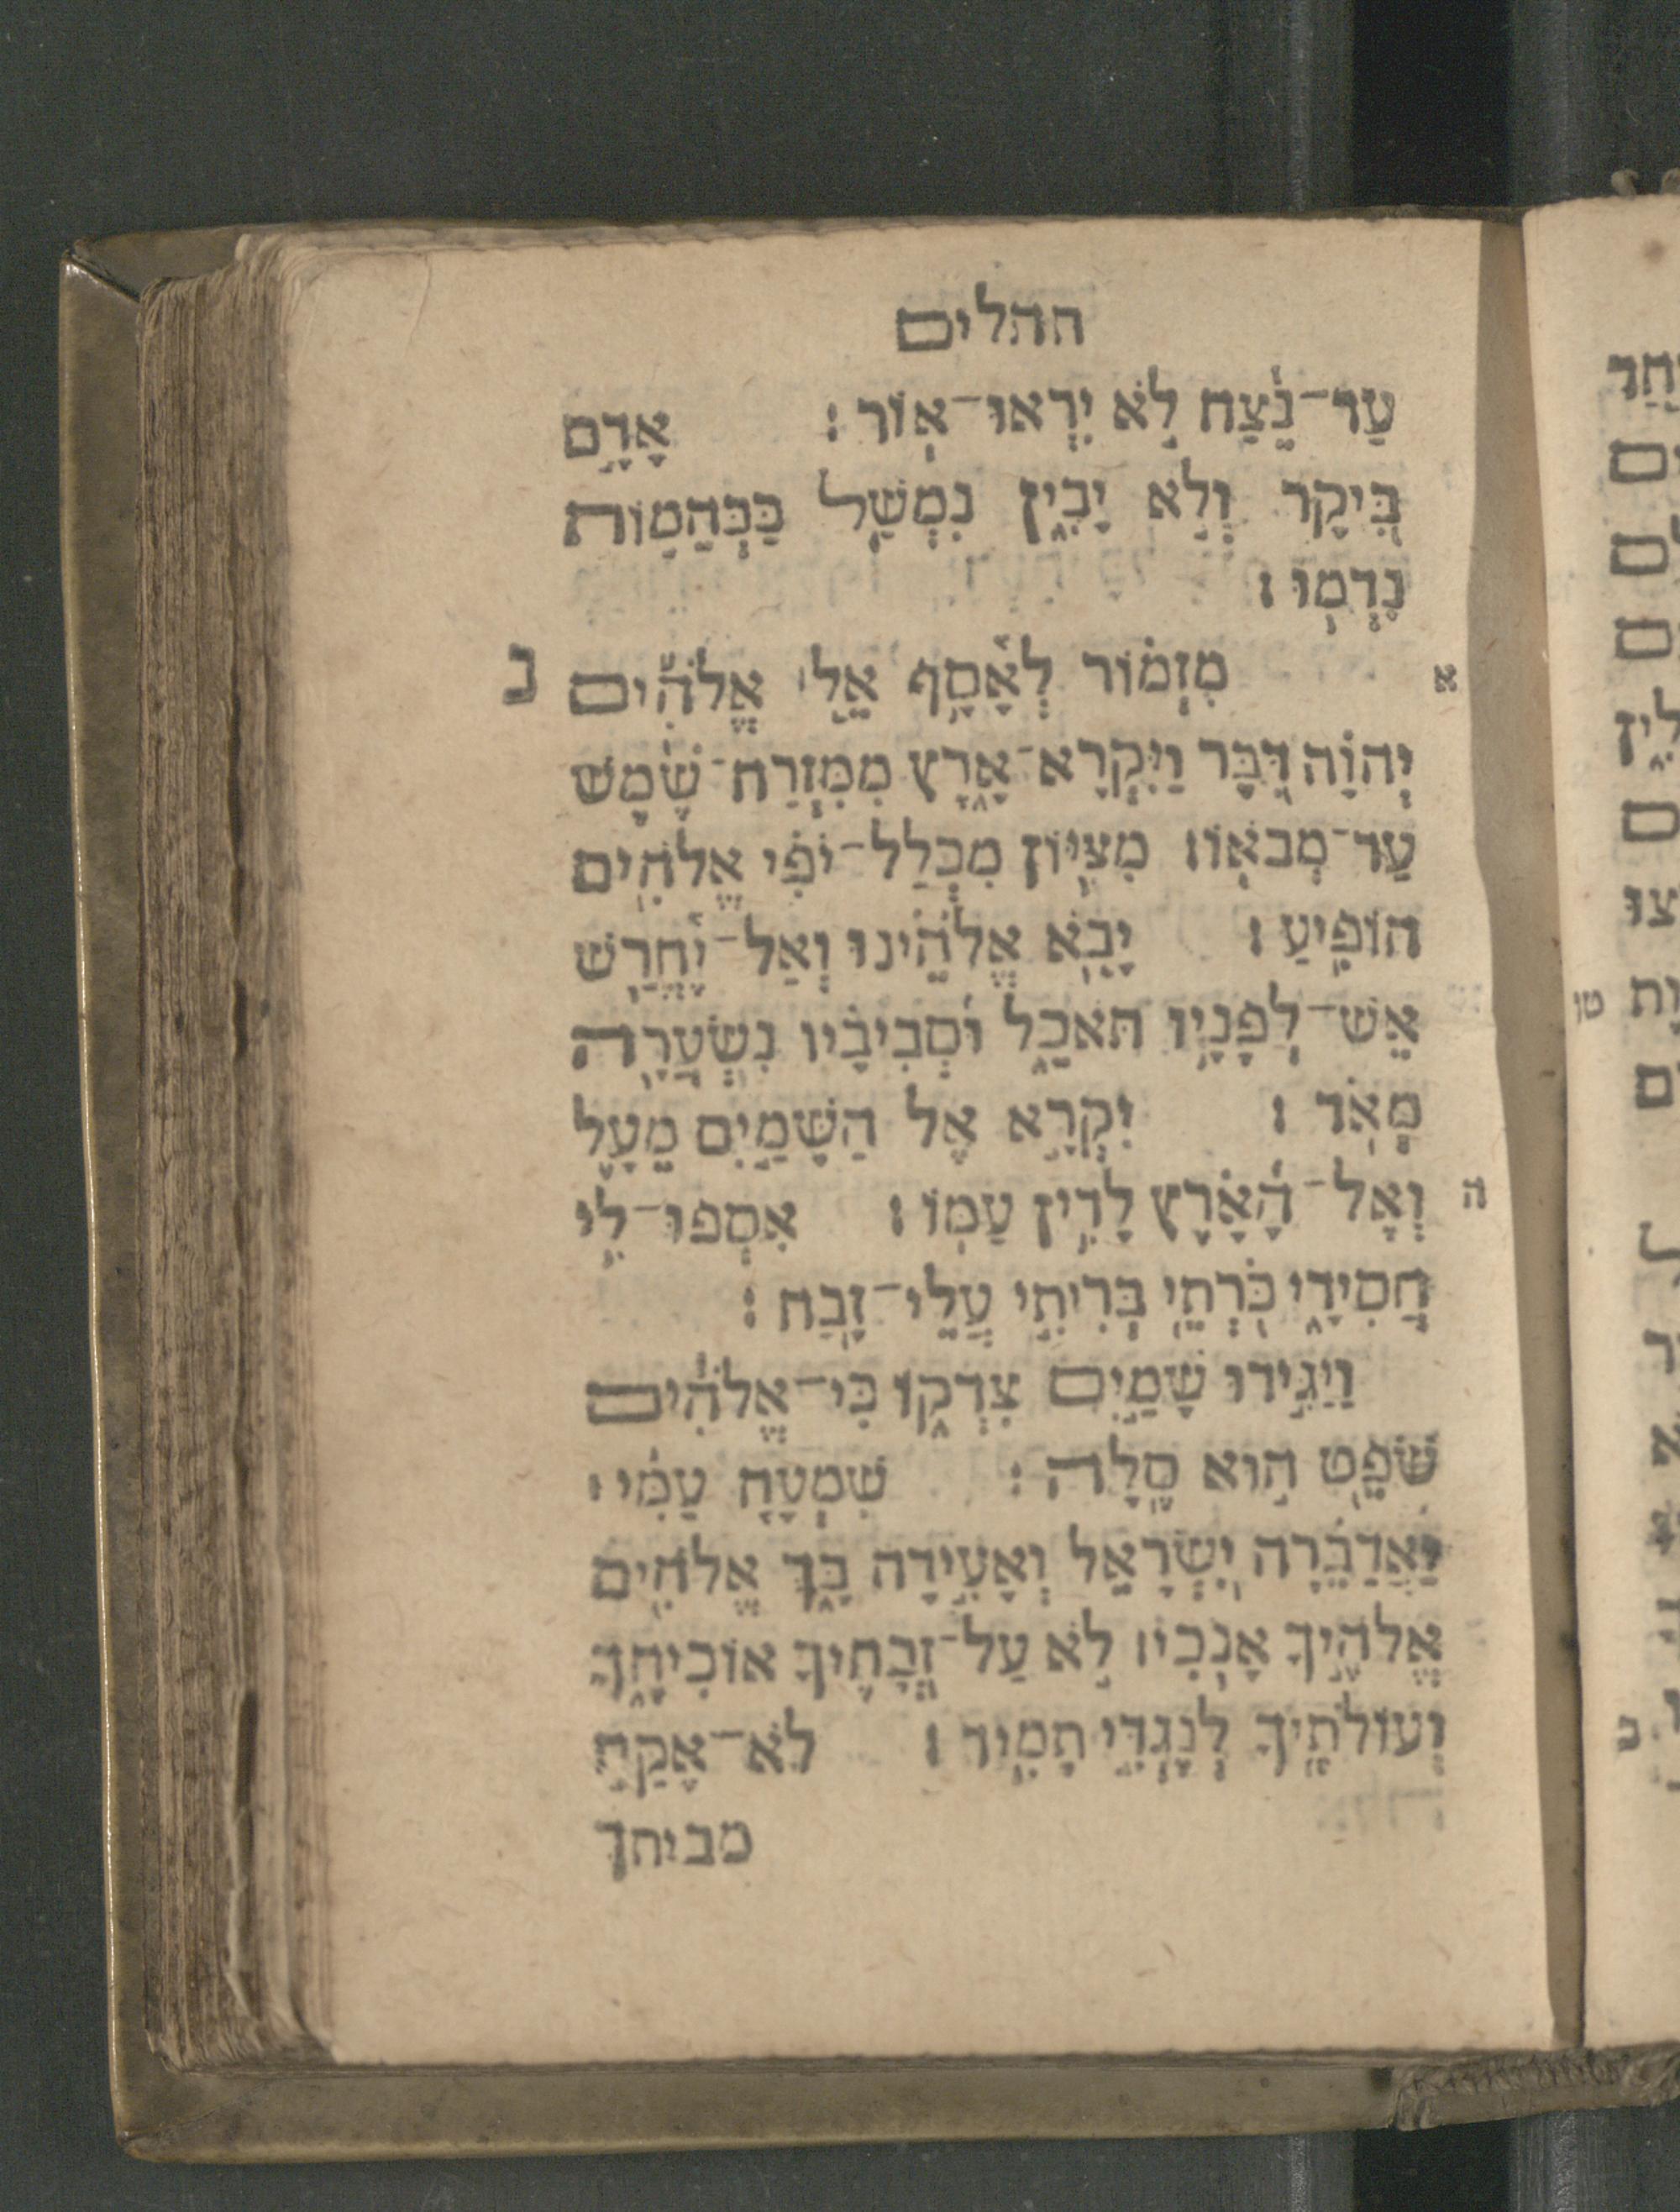 תהלים
עַד־נֵ֝֗צַח לֹ֣א יִרְאוּ־אֽוֹר׃ אָדָ֣ם
בִּ֭יקָר וְלֹ֣א יָבִ֑ין נִמְשַׁ֖ל כַּבְּהֵמ֣וֹת
נִדְמֽוּ׃
א מִזְמ֗וֹר לְאָ֫סָ֥ף אֵ֤ל׀ אֱלֹ֘הִ֡ים נ
יְֽהוָ֗ה דִּבֶּ֥ר וַיִּקְרָא־אָ֑רֶץ מִמִּזְרַח־שֶׁ֝֗מֶשׁ
עַד־מְבֹאֽוֹ׃ מִצִּיּ֥וֹן מִכְלַל־יֹ֗פִי אֱלֹהִ֥ים
הוֹפִֽיעַ׃ יָ֤בֹ֥א אֱלֹהֵ֗ינוּ וְֽאַל־יֶ֫חֱרַ֥שׁ
אֵשׁ־לְפָנָ֥יו תֹּאכֵ֑ל וּ֝סְבִיבָ֗יו נִשְׂעֲרָ֥ה
מְאֹֽד׃ יִקְרָ֣א אֶל הַשָּׁמַ֣יִם מֵעָ֑ל
ה וְאֶל־הָ֝אָ֗רֶץ לָדִ֥ין עַמּֽוֹ׃ אִסְפוּ־לִ֥י
חֲסִידָ֑י כֹּרְתֵ֖י בְרִיתִ֣י עֲלֵי־זָֽבַח׃
וַיַּגִּ֣ידוּ שָׁמַ֣יִם צִדְק֑וֹ כִּֽי־אֱלֹהִ֓ים
שֹׁפֵ֖ט ה֣וּא סֶֽלָה׃ שִׁמְעָ֤ה עַמִּ֨י׀
וַאֲדַבֵּ֗רָה יִ֭שְׂרָאֵל וְאָעִ֣ידָה בָּ֑ךְ אֱלֹהִ֖ים
אֱלֹהֶ֣יךָ אָנֹֽכִי׃ לֹ֣א עַל־זְ֭בָחֶיךָ אוֹכִיחֶ֑ךָ
וְעוֹלֹתֶ֖יךָ לְנֶגְדִּ֣י תָמִֽיד׃ לֹא־אֶקַּ֣ח
מביתך
טו